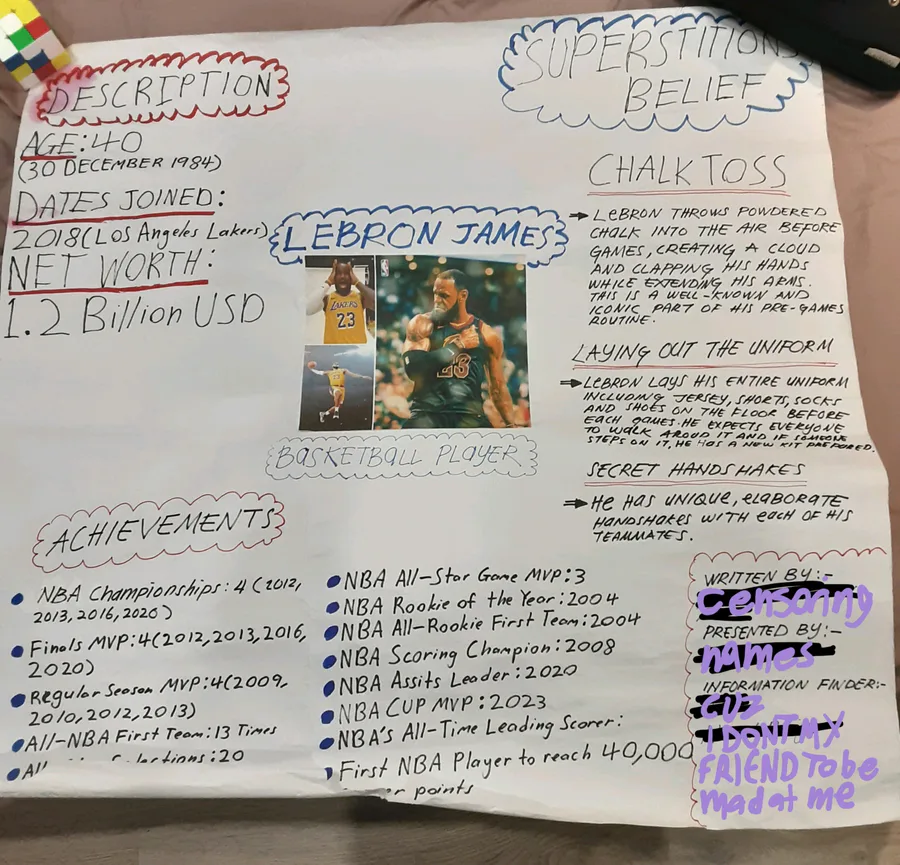 DESCRIPTION
AGE:40
(30 DECEMBER 1984)
DATES JOINED:
2018(Los Angeles Lakers)
NET WORTH:
1.2 Billion USD
LEBRON JAMES
LAKERS
23
23
BASKETBALL PLAYER
SUPERSTITION
BELIEF
CHALK TOSS
LEBRON THROWS POWDERED
CHALK INTO THE AIR BEFORE
GAMES, CREATING A CLOUD
AND CLAPPING HIS HANDS
WHILE EXTENDING HIS ARMS.
THIS IS A WELL-KNOWN AND
ICONIC PART OF HIS PRE-GAMES
ROUTINE.
LAYING OUT THE UNIFORM
LEBRON LAYS HIS ENTIRE UNIFORM
INCLUDING JERSEY, SHORTS, SOCKS
AND SHOES ON THE FLOOR BEFORE
EACH GAMES. HE EXPECTS EVERYONE
TO WALK AROUD IT AND IF SOMEONE
STEPS ON IT, HE HAS A NEW KIT PREPARED.
SECRET HANDSHAKES
HE HAS UNIQUE, ELABORATE
HANDSHAKES WITH EACH OF HIS
TEAMMATES.
ACHIEVEMENTS
NBA Championships: 4 (2012,
2013, 2016, 2020)
Finals MVP: 4(2012, 2013, 2016,
2020)
Regular Season MVP: 4(2009,
2010, 2012, 2013)
All-NBA First Team: 13 Times
:20
NBA All-Star Game MVP: 3
NBA Rookie of the Year: 2004
NBA All-Rookie First Team: 2004
NBA Scoring Champion: 2008
NBA Assits Leader: 2020
NBA CUP MVP: 2023
NBA's All-Time Leading Scorer:
First NBA Player to reach 40,000
points
WRITTEN BY:-
censoring
PRESENTED BY:-
names
INFORMATION FINDER:-
cuz
I DONT MY
FRIEND To be
mad at me